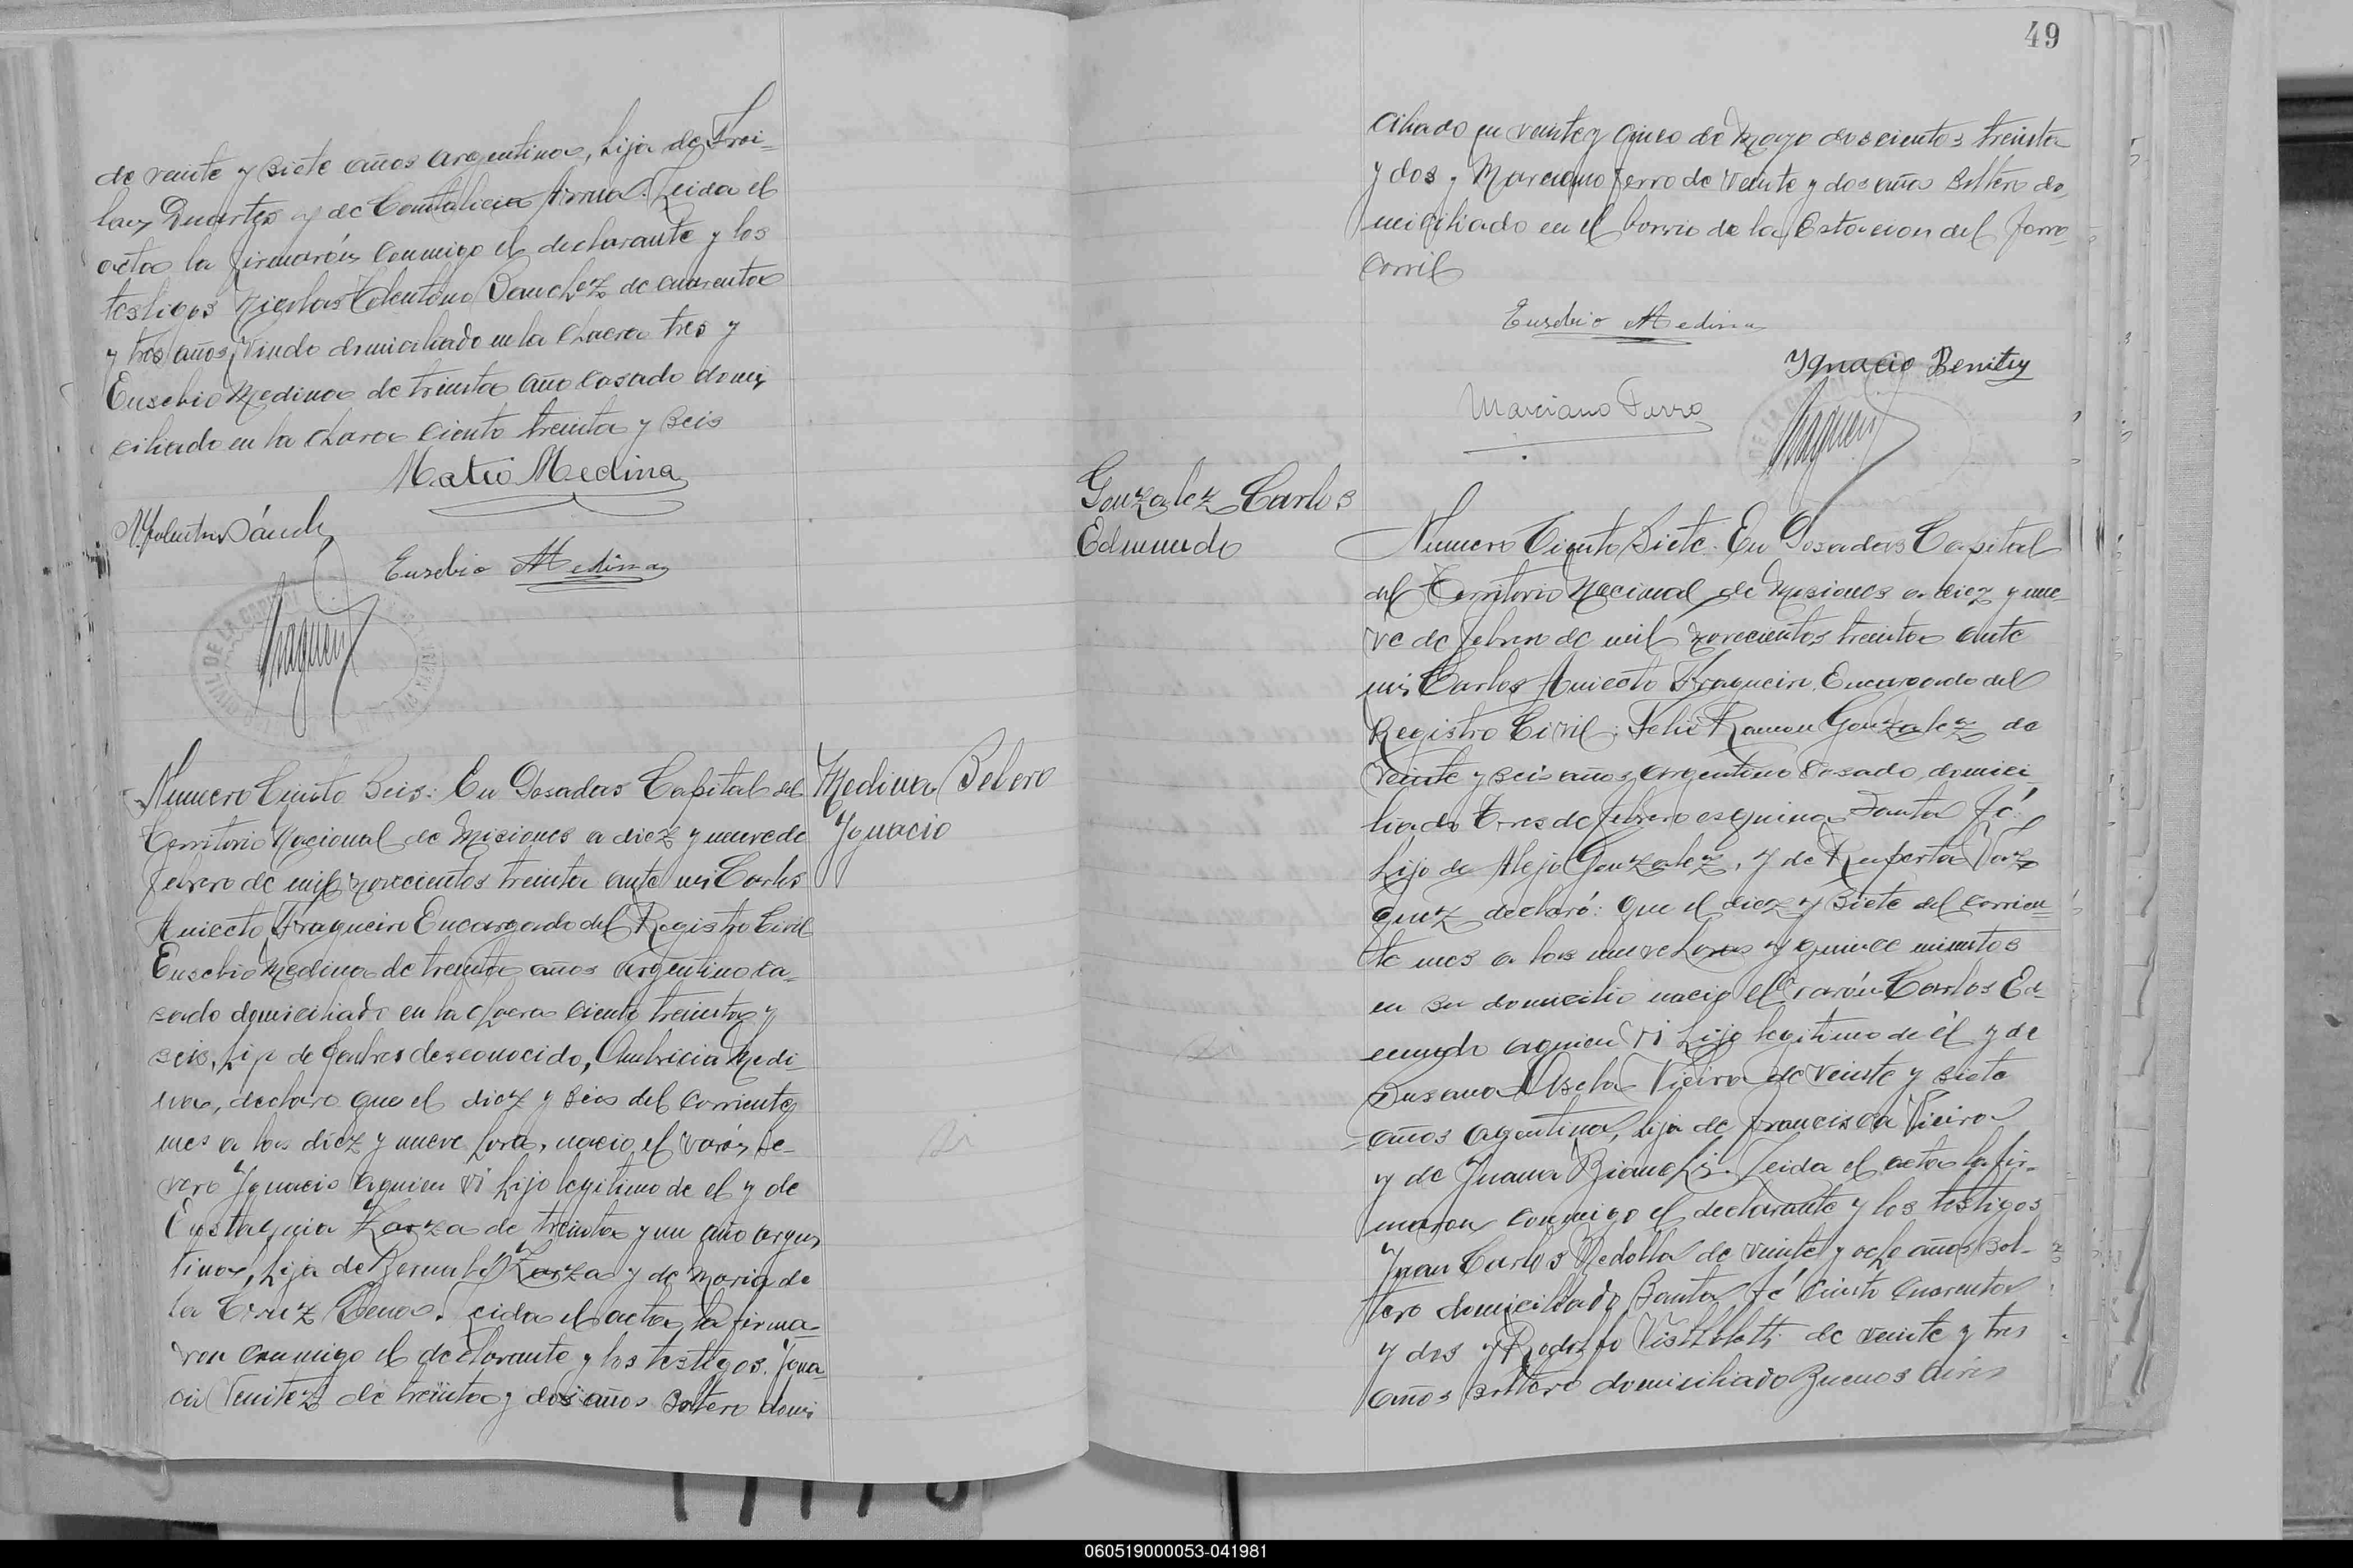 de veinte y siete años argentina, hija de Froi-
lan Duarte y de Contalicia Armoa. Leida el
acta la firmarón conmigo el declarante y los
testigos Nicolas Tolentino Sanchez de cuarenta
y tres años, Viudo domiciliado en la chacra tres y
Eusebio Medina de treinta año casado domi
ciliado en la chacra ciento treinta y seis
Matio Medina
N. Tolentino Sánch
Eusebio Medina
Numero Ciento Seis: En Posadas Capital del
Territorio Nacional de Misiones a diez y nueve de
febrero de mil novecientos treinta ante mi Carlos
Aniceto Fragueiro Encargado del Registro Civil
Eusebio Medina de treinta años argentino ca-
sado domiciliado en la chacra ciento treinta y
seis, hijo de padres desconocido, Medi
na, declaro que el diez y seis del corriente
mes a las diez y nueve hora, nacio el varón Se-
vero Ygnacio aquien vi hijo legitimo de el y de
Eustaquia Zarza de treinta y un año argen
tina, hija de Zarza y de Maria de
la Cruz. Leida el acta, la firma-
ron conmigo el declarante y los testigos. Ygna
cio Venitez de treinta y dos años Soltero domi
Medina, Severo
Ygnacio
49
ciliado en veinte y cinco de Mayo doscientos treinta
y dos y Marciano Ferro de Veinte y dos años Soltero do-
miciliado en el barrio de la Estacion del Ferro
carril
Eusebio Medina
Ygnacio Benitez
Marciano Ferro
Gonzalez Carlos
Edmundo
Numero Ciento Siete. En Posadas Capital
del Territorio Nacional de Misiones a diez y nue-
ve de febrero de mil novecientos treinta ante
mi, Carlos Aniceto Fragueiro, Encargado del
Registro Civil: Felix Ramon Gonzalez de
veinte y seis años argentino casado, domici
liado Tres de febrero esquina Santa Fé
hijo de Alejo Gonzalez, y de Ruperta Vaz
quez declaró: que el diez y siete del corrien-
te mes a las nueve horas y quince minutos
en su domicilio nacio el varón Carlos Ed-
mundo aquien vi hijo legitimo de él y de
Susana Vieira de veinte y siete
años agentina, hija de Francisca Vieira
y de Juana Bianchi. Leida el acta la fir-
maron conmigo el declarante y los testigos
Juan Carlos Redolla de veinte y ocho años Sol-
tero domiciliado Santa Fé ciento cuarenta
y dos y Rodolfo de veinte y tres
años soltero domiciliado Buenos Aires
060519000053-041981